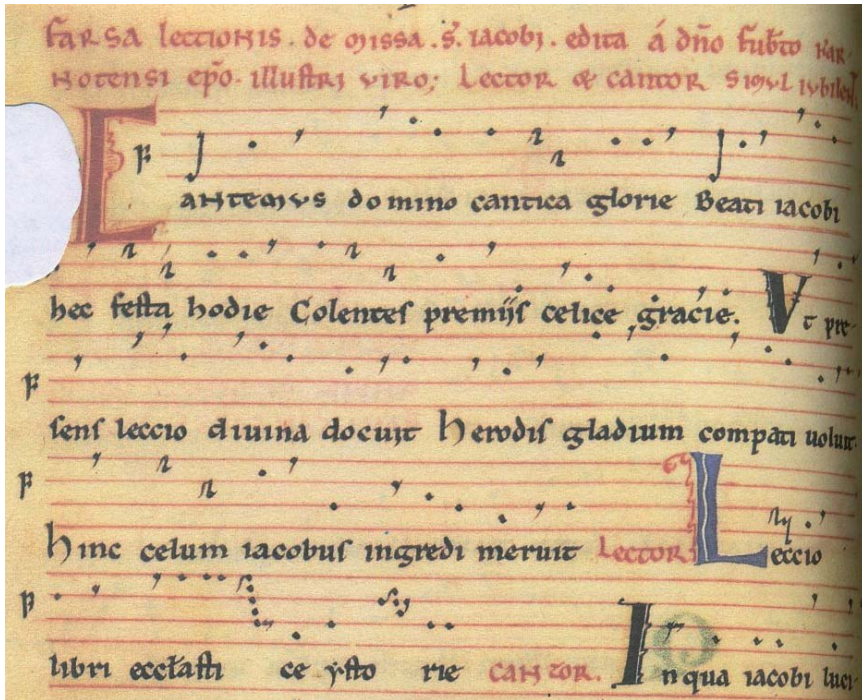 farsa lectionis . de missa . s̄. iacobi . edita á dn̄o fulb̄to kar
notensi ep̄o . illustri viro; Lector & cantor simul iubilen
Cantemus domino cantica glorie Beati iacobi
hec festa hodie Colentes premijs celice gracie. Vt pre
sens leccio diuina docuit herodis gladium compati uoluit
hinc celum iacobus ingredi meruit Lector Leccio
libri eccl̄asti ce ysto rie cantor. In qua iacobi luci